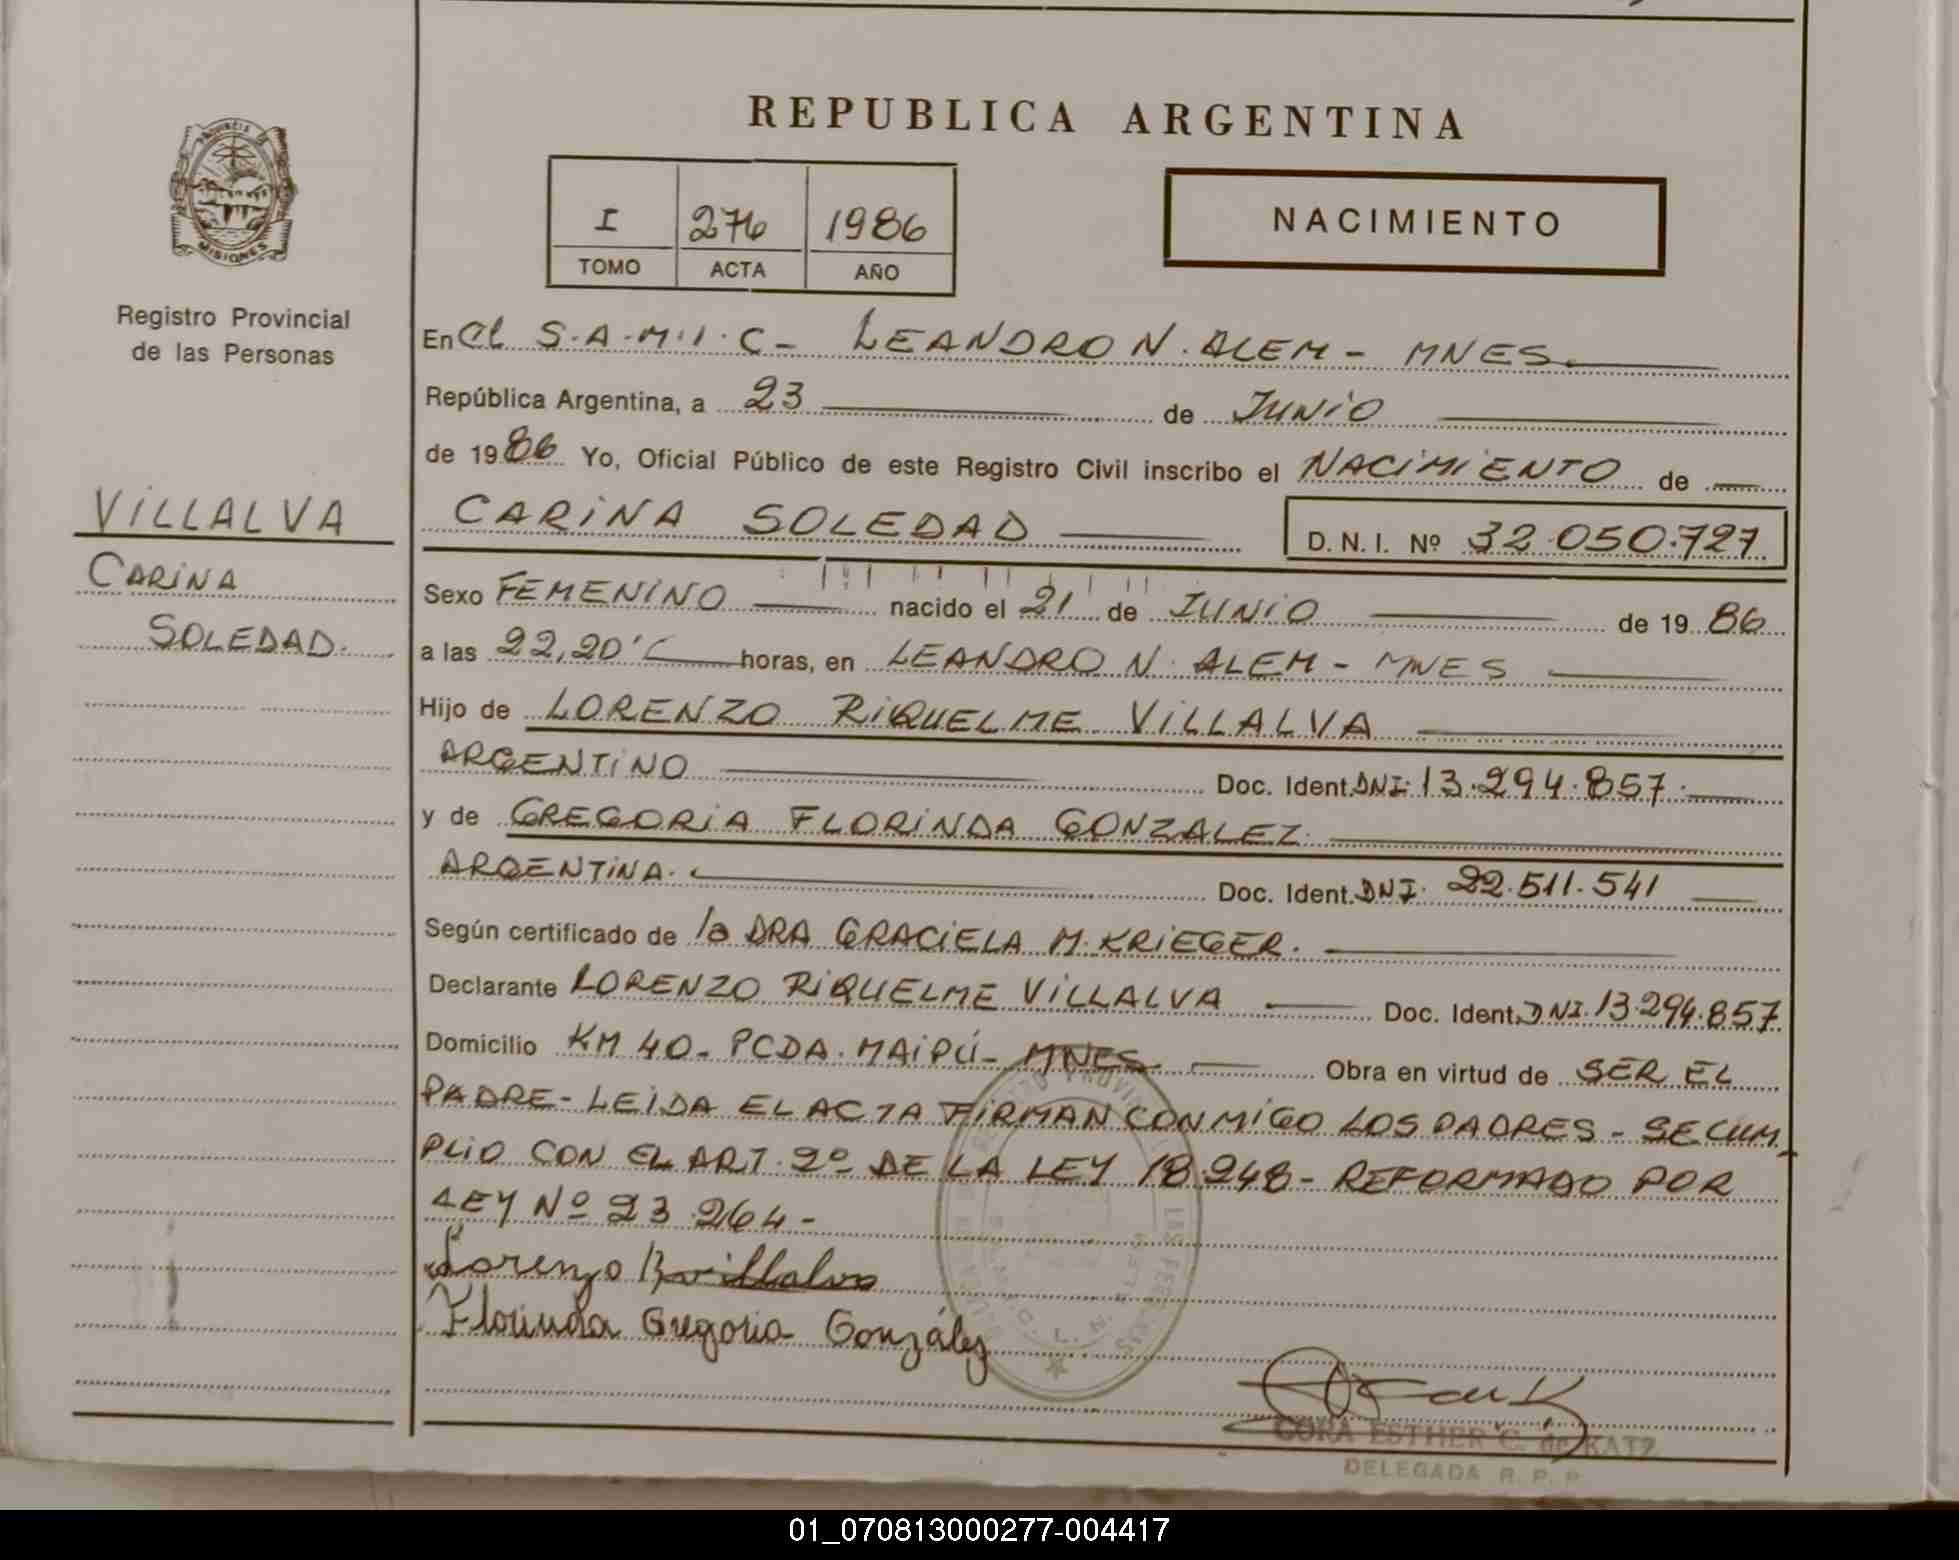 REPUBLICA ARGENTINA
PROVINCIA DE
MISIONES
I 276 1986
TOMO ACTA AÑO
NACIMIENTO
Registro Provincial
de las Personas
VILLALVA
CARINA
SOLEDAD.
En el S.A.M.I.C - LEANDRO N. ALEM - MNES.
República Argentina, a 23 de JUNIO
de 1986 Yo, Oficial Público de este Registro Civil inscribo el NACIMIENTO de
CARINA SOLEDAD D. N. I. Nº 32.050.727
Sexo FEMENINO nacido el 21 de JUNIO de 1986
a las 22,20' horas, en LEANDRO N. ALEM - MNES
Hijo de LORENZO RIQUELME VILLALVA
ARGENTINO Doc. Ident. DNI. 13.294.857.
y de GREGORIA FLORINDA GONZALEZ.
ARGENTINA. Doc. Ident. DNI. 22.511.541
Según certificado de la DRA GRACIELA M. KRIEGER.
Declarante LORENZO RIQUELME VILLALVA Doc. Ident. DNI. 13.294.857
Domicilio KM 40 - PCDA. MAIPÚ - MNES. Obra en virtud de SER EL
PADRE - LEIDA EL ACTA FIRMAN CONMIGO LOS PADRES - SE CUM
PLIO CON EL ART. 2º DE LA LEY 18.248 - REFORMADO POR
LEY Nº 23.264 -
Lorenzo R villalva
Florinda Gregoria González
CORA ESTHER C. de KATZ
DELEGADA R. P. P.
01_070813000277-004417